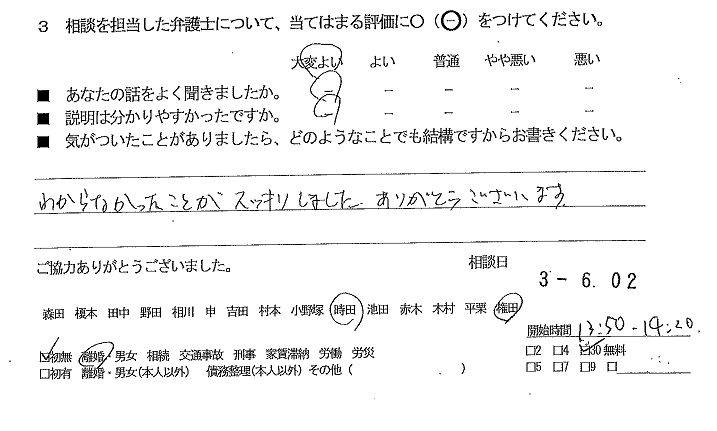 3 相談を担当した弁護士について、当てはまる評価に○（○）をつけてください。
大変よい よい 普通 やや悪い 悪い
■ あなたの話をよく聞きましたか。 － － － － －
■ 説明は分かりやすかったですか。 － － － － －
■ 気がついたことがありましたら、どのようなことでも結構ですからお書きください。
わからなかったことがスッキリしました ありがとうございます
ご協力ありがとうございました。
相談日 3-6.02
森田 榎本 田中 野田 相川 申 吉田 村本 小野塚 時田 池田 赤木 木村 平栗 権田
開始時間 13:50-14:20
☑初無 離婚・男女 相続 交通事故 刑事 家賃滞納 労働 労災
□2 □4 ☑30 無料
□初有 離婚・男女(本人以外) 債務整理(本人以外) その他（ ）
□5 □7 □9 □